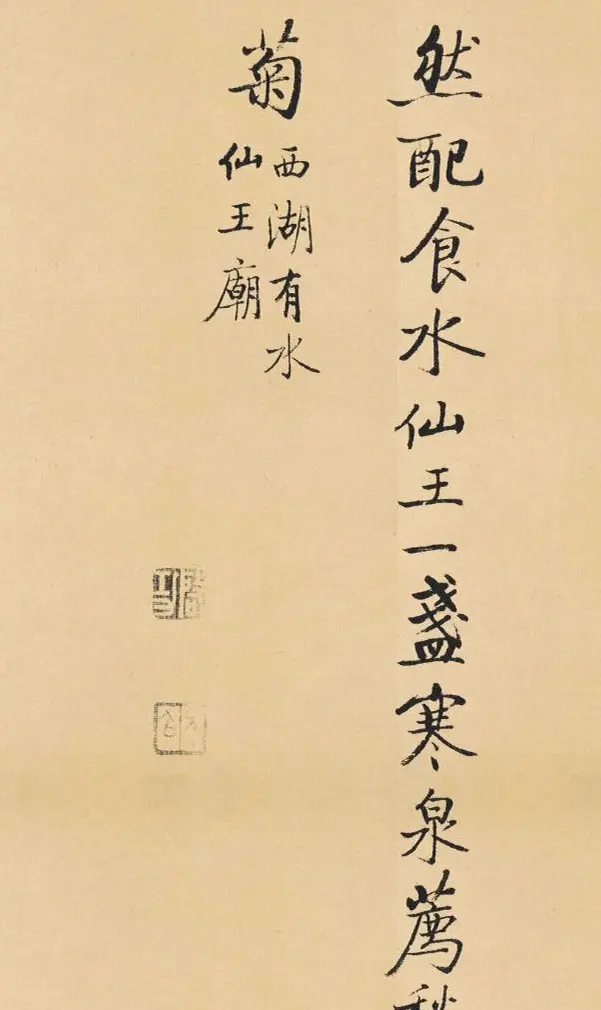 然配食水仙王一盞寒泉薦秋
菊
西湖有水
仙王廟